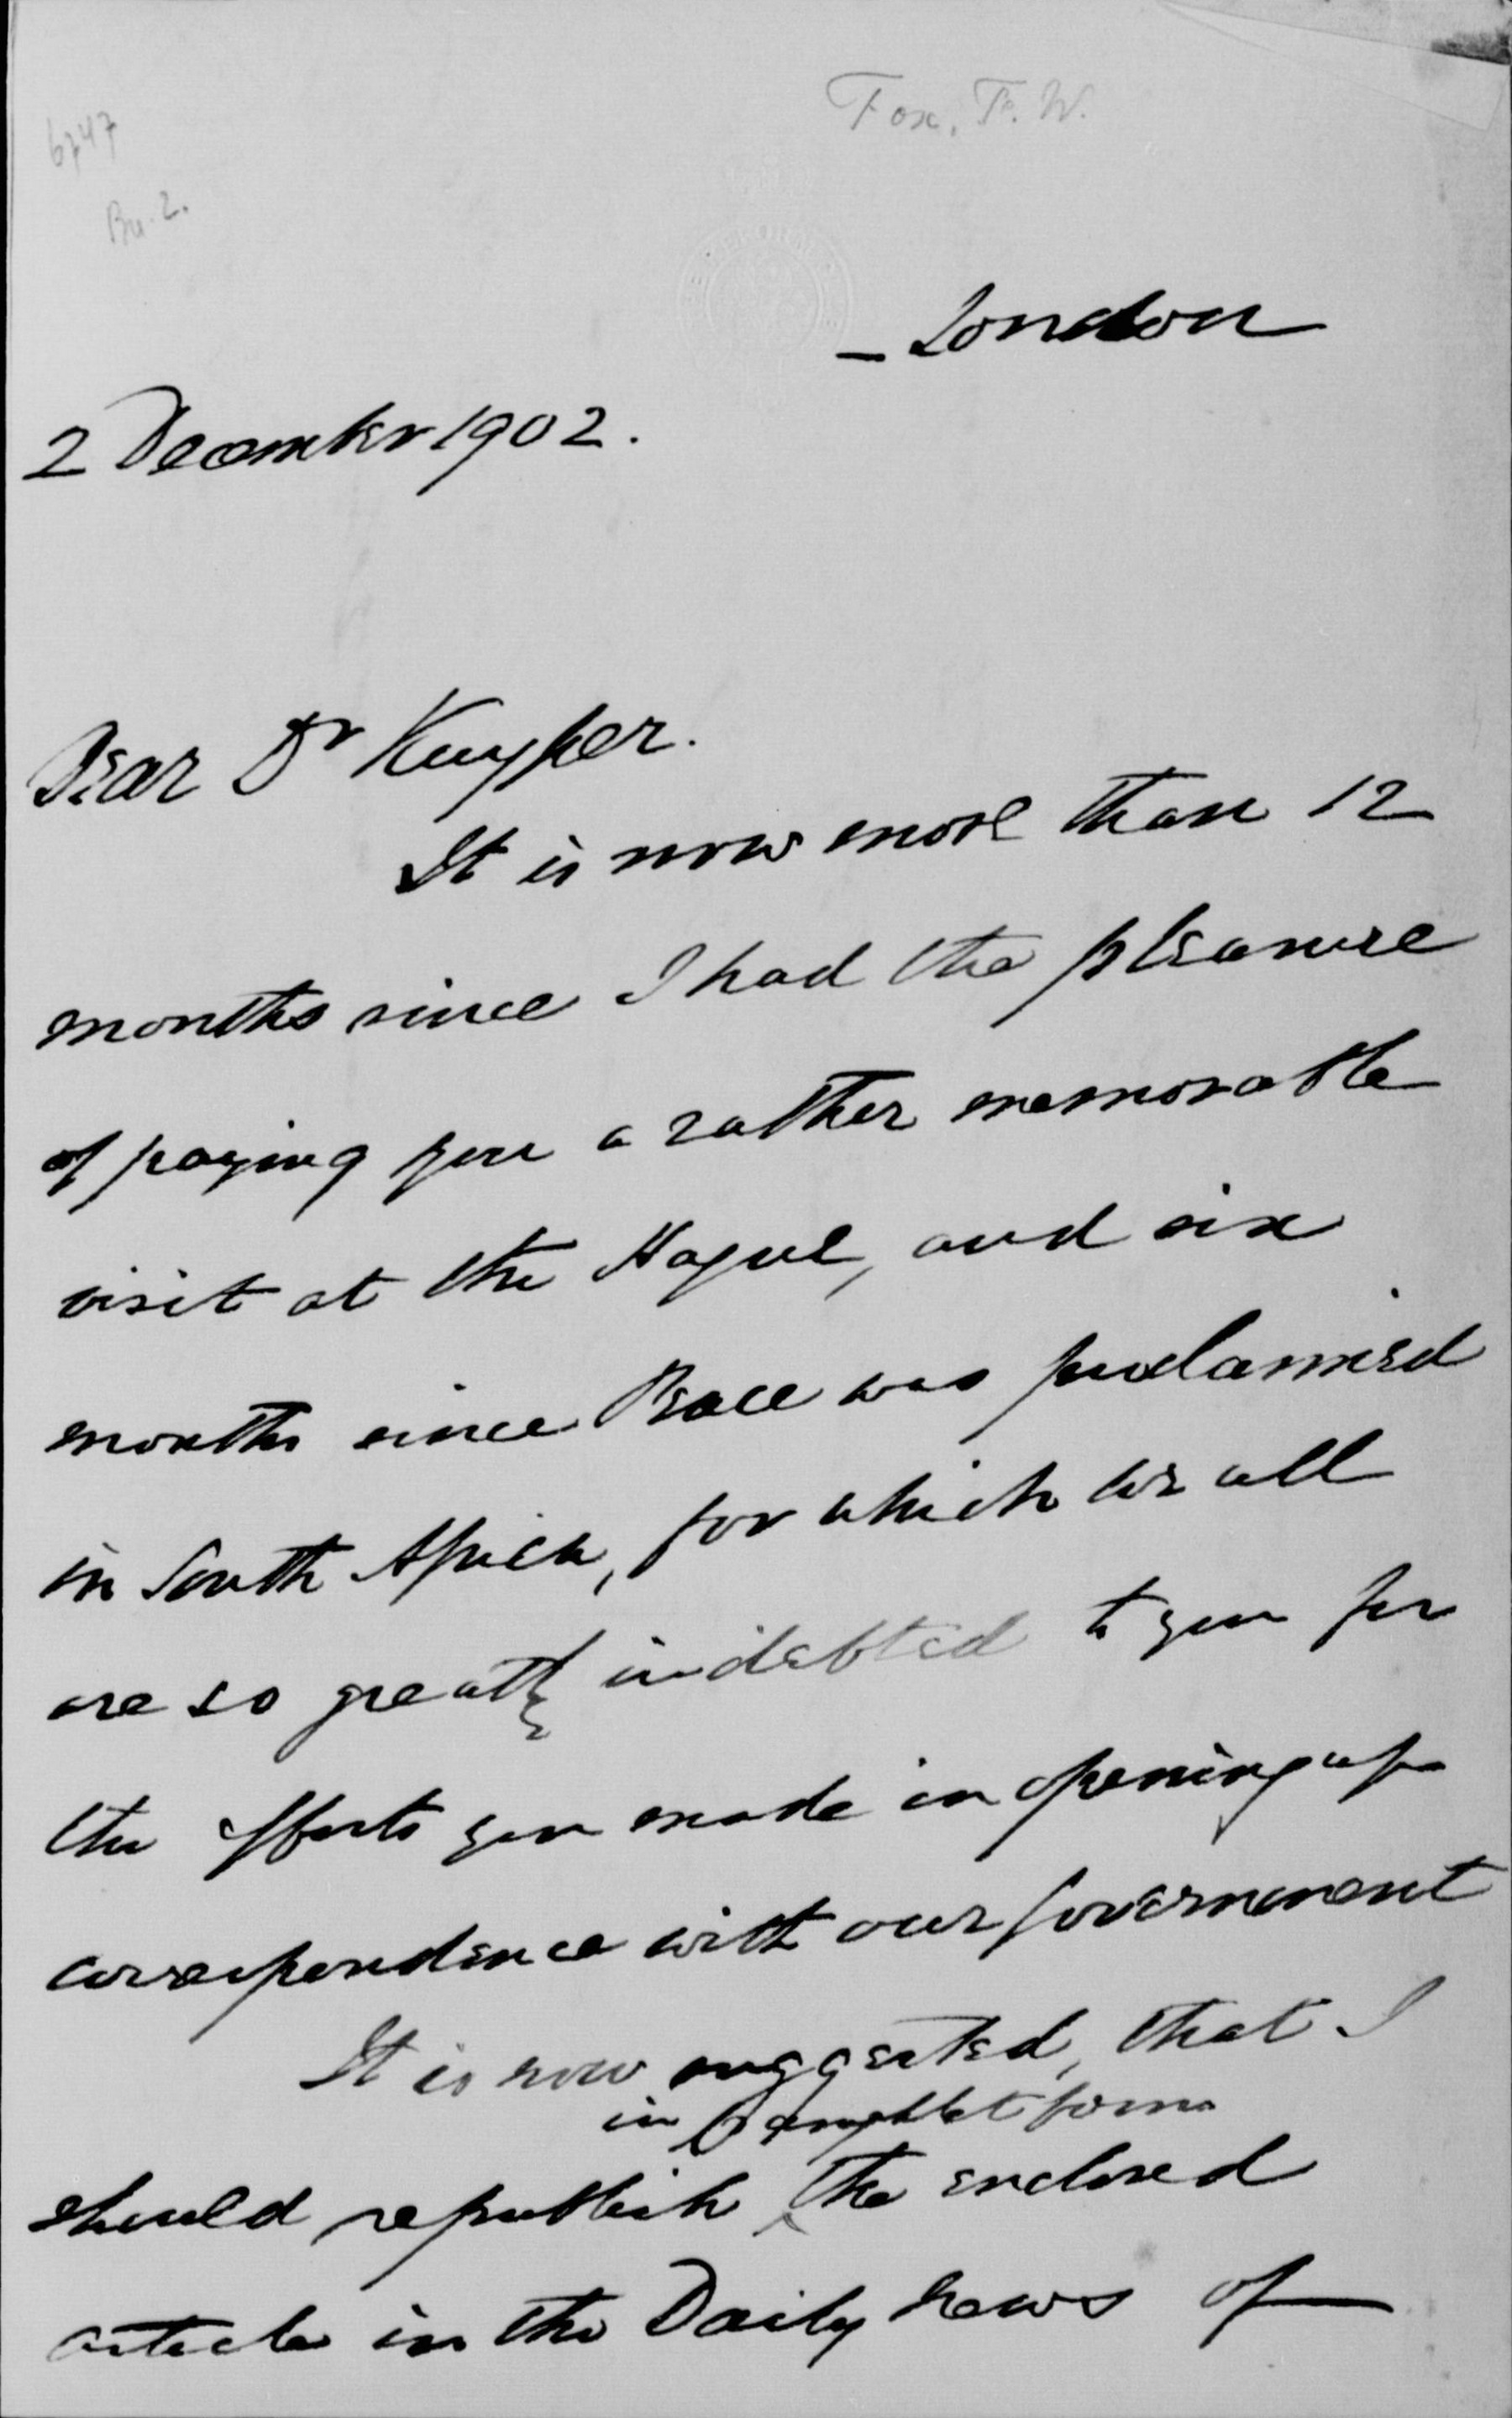 Fox, F. W.
6747
Bu. 2.
– London
2 December 1902.
Dear Dr Kuyper.
It is now more than 12
months since I had the pleasure
of paying you a rather memorable
visit at the Hague, and six
months since Peace was proclaimed
in South Africa, for which we all
are so greatly indebted to you for
the efforts you made in opening up
correspondence with our Government
It is now suggested, that I
in Pamphlet form
should republish the enclosed
article in the Daily News of